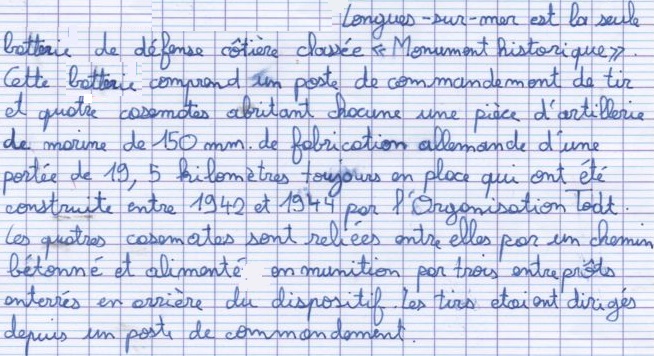 Longues-sur-mer est la seule
batterie de défense côtière classée « Monument historique ».
Cette batterie comprend un poste de commandement de tir
et quatre casemates abritant chacune une pièce d'artillerie
de marine de 150 mm. de fabrication allemande d'une
portée de 19, 5 kilomètres toujours en place qui ont été
construite entre 1942 et 1944 par l'Organisation Todt.
Les quatres casematес sont reliées entre elles par un chemin
bétonné et alimenté en munition par trois entrepôts
enterrés en arrière du dispositif. Les tirs étaient dirigés
depuis un poste de commandement.